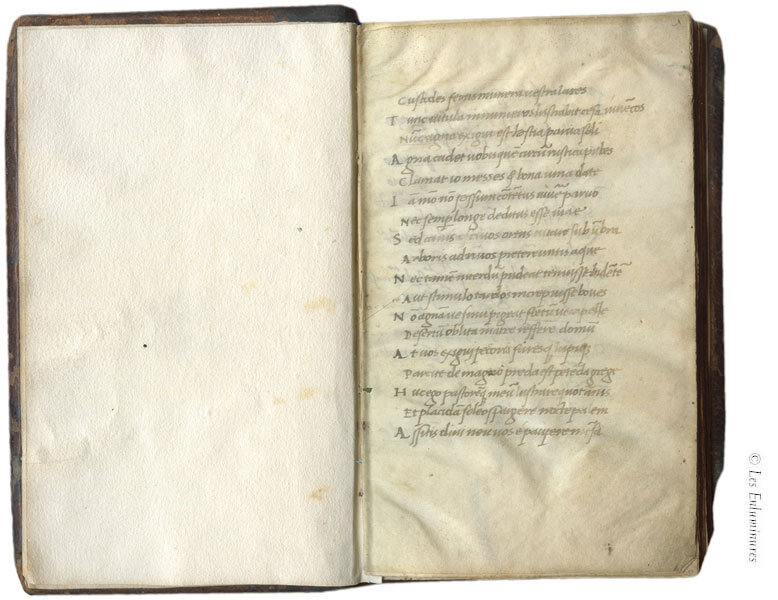 Custodes fertis munera uestra lares
Tunc uitula innumeros lustrabat cesa iuuẽcos
Nũc agna exigui est hostia parua soli
Agna cadet uobis quẽ circũ rustica pubes
Clamat io messes & bona uina date
Iã mõ nõ possum cõtẽtus uiuẽ paruo
Nec semp longe deditus esse uiae
Sed canis estiuos ortus uitare sub ũbra
Arboris ad riuos pretereuntis aque
Nec tamẽ interdũ pudeat tenuisse bidẽtẽ
Aut stimulo tardos increpuisse boues
Nõ agnãue sinu pigeat fœtũue capelle
Desertũ oblita matre refferre domũ
At uos exigui pecoris fures lupiq
Parcite de magno preda est petẽda grege
Hic ego pastorẽq meũ lustrare quotannis
Et placidã soleo spargere lacte palem
Assitis diui neu uos e paupere mẽsa
© Les Enluminures